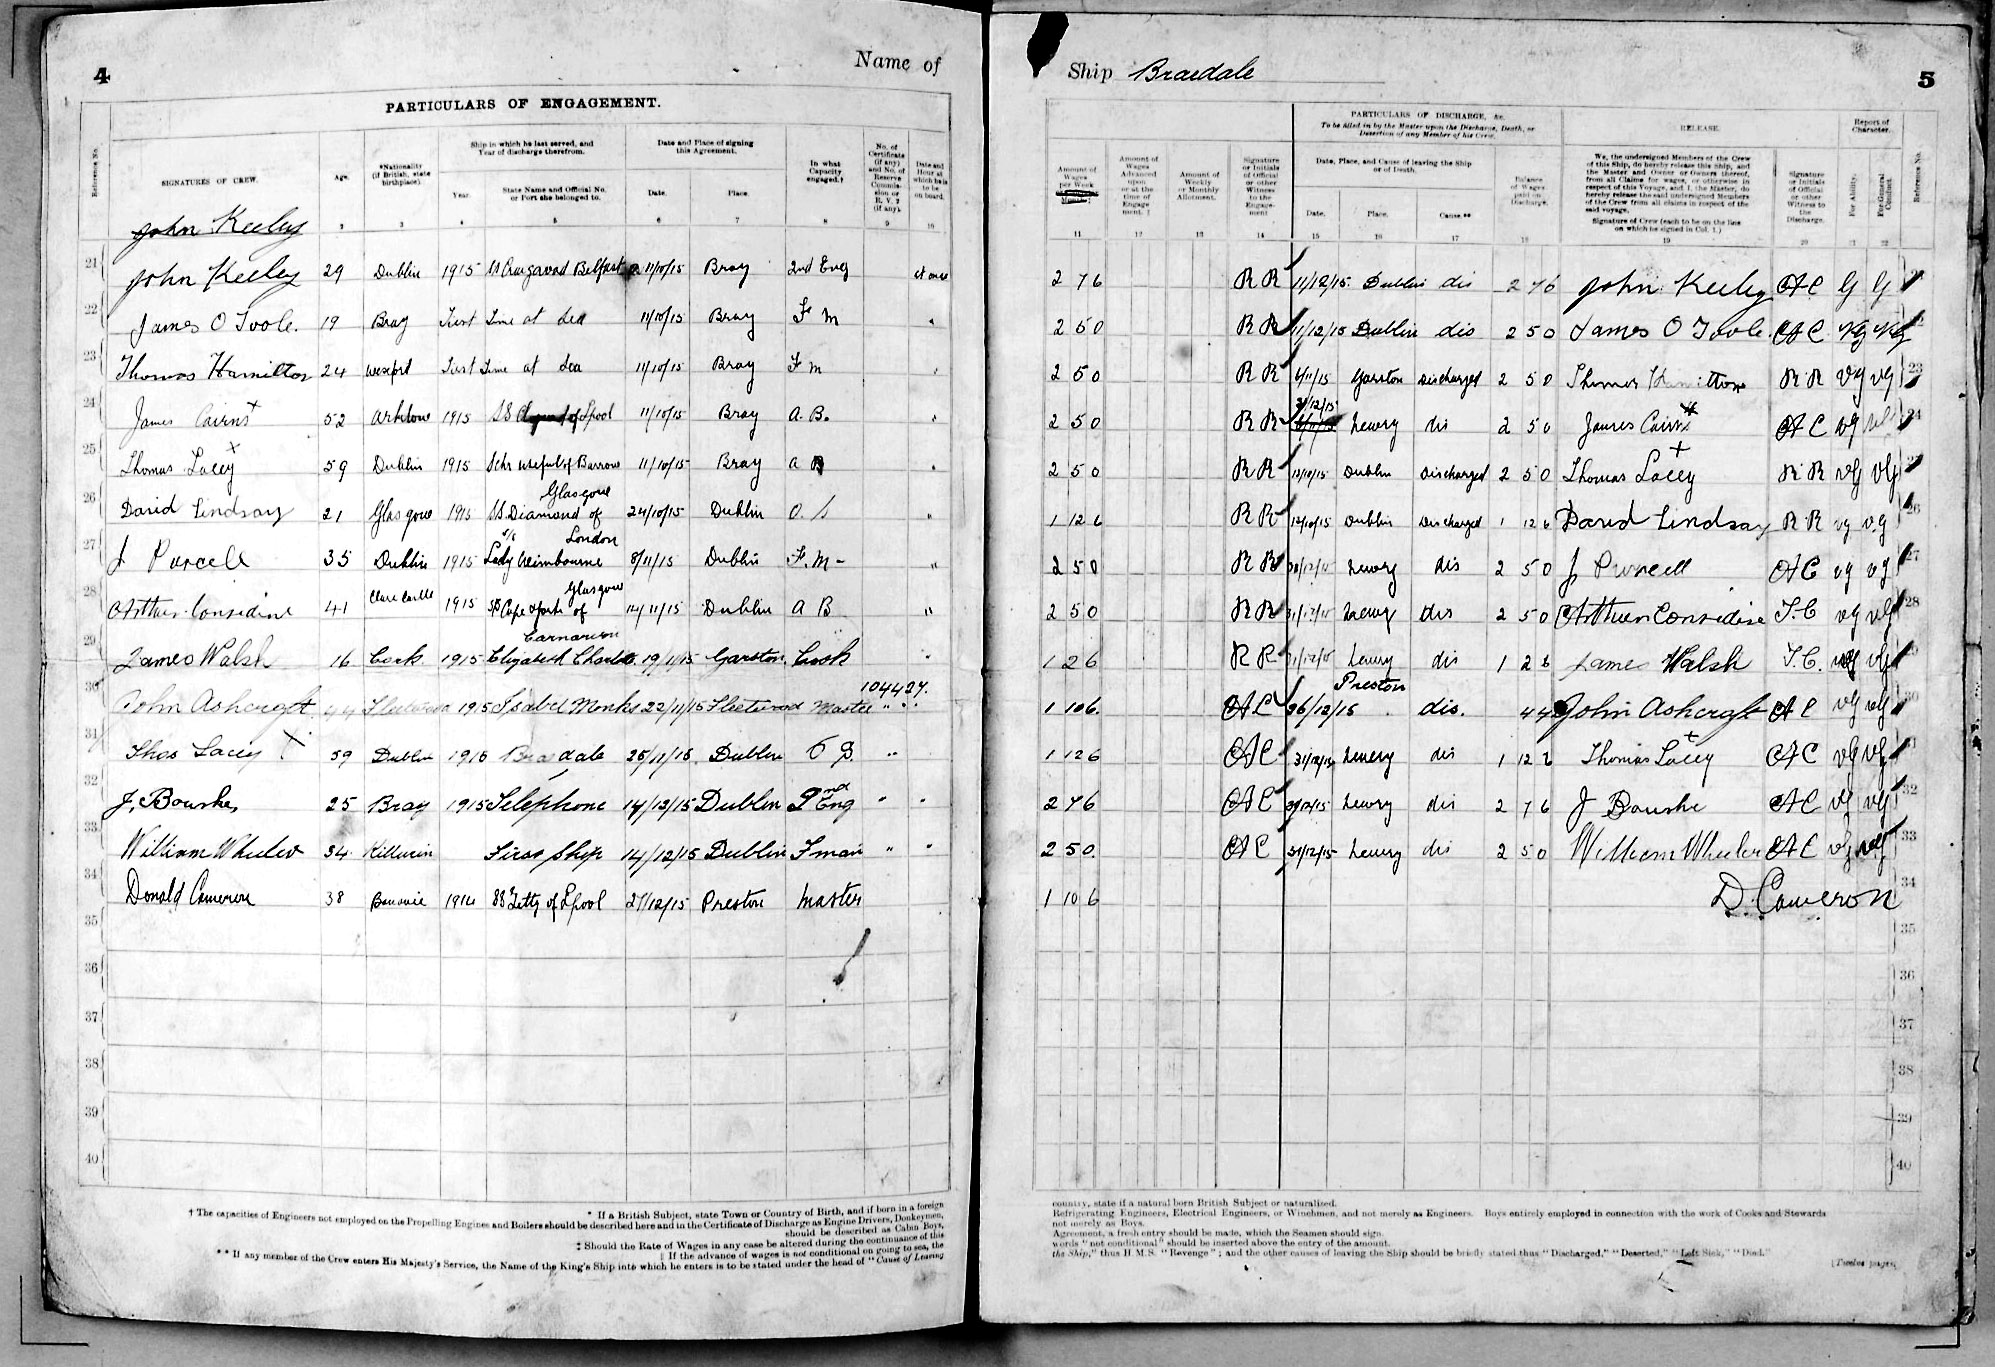 4
Name of
PARTICULARS OF ENGAGEMENT.
Reference No.
SIGNATURES OF CREW.
Age.
*Nationality (if British, state birthplace).
Ship in which he last served, and Year of discharge therefrom.
Year.
State Name and Official No. or Port she belonged to.
Date and Place of signing this Agreement.
Date.
Place.
In what Capacity engaged.†
No. of Certificate (if any) and No. of Reserve Commission or R.V.2 (if any).
Date and Hour at which he is to be on board.
John Keeley
21 John Keeley 29 Dublin 1915 Craigavad Belfast 11/10/15 Bray 2nd Eng at once
22 James O Toole. 19 Bray First Time at Sea 11/10/15 Bray F M "
23 Thomas Hamilton 24 Wexford First Time at Sea 11/10/15 Bray F M "
24 James Cairns + 52 Arklow 1915 SS of Lpool 11/10/15 Bray A. B. "
25 Thomas Lacey + 59 Dublin 1915 Schr Useful of Barrow 11/10/15 Bray A B "
26 David Lindsay 21 Glasgow 1915 SS Diamond of Glasgow 24/10/15 Dublin O. S "
27 J Purcell 35 Dublin 1915 s/s Lady Wimbourne London 8/11/15 Dublin F. M - "
28 Arthur Considine 41 Clare Castle 1915 SS Cape York of Glasgow 14/11/15 Dublin A B "
29 James Walsh 16 Cork 1915 Elizabeth Charlotte Carnarvon 19/11/15 Garston Cook "
30 John Ashcroft 44 Fleetwood 1915 Isabel Monks 22/11/15 Fleetwood Master 104427. "
31 Thos Lacey + 59 Dublin 1915 Braedale 25/11/15 Dublin O S. "
32 J, Bourke, 25 Bray 1915 Telephone 14/12/15 Dublin 2nd Eng " "
33 William Wheeler 34 Killurin First Ship 14/12/15 Dublin Fman " "
34 Donald Cameron 38 Banavie 1914 SS Letty of Lpool 27/12/15 Preston Master
35
36
37
38
39
40
* If a British Subject, state Town or Country of Birth, and if born in a foreign
† The capacities of Engineers not employed on the Propelling Engines and Boilers should be described here and in the Certificate of Discharge as Engine Drivers, Donkeymen,
should be described as Cabin Boys,
‡ Should the Rate of Wages in any case be altered during the continuance of this
‖ If the advance of wages is not conditional on going to sea, the
** If any member of the Crew enters His Majesty's Service, the Name of the King's Ship into which he enters is to be stated under the head of "Cause of Leaving
Ship Braedale
5
PARTICULARS OF DISCHARGE, &c.
To be filled in by the Master upon the Discharge, Death, or Desertion of any Member of his Crew.
RELEASE.
Report of Character.
Amount of Wages per Week
Amount of Wages Advanced upon or at the time of Engagement. ‡
Amount of Weekly or Monthly Allotment.
Signature or Initials of Official or other Witness to the Engagement
Date, Place, and Cause of leaving the Ship or of Death.
Date.
Place.
Cause.**
Balance of Wages paid on Discharge.
We, the undersigned Members of the Crew of this Ship, do hereby release this Ship, and the Master and Owner or Owners thereof, from all Claims for wages, or otherwise in respect of this Voyage, and I, the Master, do hereby release the said undersigned Members of the Crew from all claims in respect of the said voyage.
Signature of Crew (each to be on the line on which he signed in Col. 1.)
Signature or Initials of Official or other Witness to the Discharge.
For Ability.
For General Conduct.
Reference No.
11 12 13 14 15 16 17 18 19 20 21 22
2 7 6 R R 11/12/15. Dublin dis 2 7 6 John Keeley A C G G
2 5 0 R R 11/12/15 Dublin dis 2 5 0 James O Toole. A C VG VG
2 5 0 R R 6/11/15 Garston Discharged 2 5 0 Thomas Hamilton R R VG VG 23
2 5 0 R R 31/12/15 Newry dis 2 5 0 James Cairns + A C VG VG 24
2 5 0 R R Dublin Discharged 2 5 0 Thomas Lacey + R R VG VG
1 12 6 R R Dublin Discharged 1 12 6 David Lindsay R R VG VG 26
2 5 0 R R Newry dis 2 5 0 J Purcell A C VG VG 27
2 5 0 R R 31/12/15 Newry dis 2 5 0 Arthur Considine T. C VG VG 28
1 2 6 R R 31/12/15 Newry dis 1 2 6 James Walsh T. C. VG VG
1 10 6. A C 26/12/15 Preston dis. 4 4 John Ashcroft A C VG VG 30
1 12 6 A C 31/12/15 Newry dis 1 12 Thomas Lacey + A C VG VG
2 7 6 A C Newry dis 2 7 6 J Bourke A C VG VG 32
2 5 0. A C 31/12/15 Newry dis 2 5 0 William Wheeler A C VG VG 33
1 10 6 D. Cameron 34
35
36
37
38
39
40
country, state if a natural born British Subject or naturalized.
Refrigerating Engineers, Electrical Engineers, or Winchmen, and not merely as Engineers. Boys entirely employed in connection with the work of Cooks and Stewards
not merely as Boys.
Agreement, a fresh entry should be made, which the Seamen should sign.
words "not conditional" should be inserted above the entry of the amount.
the Ship," thus H.M.S. "Revenge"; and the other causes of leaving the Ship should be briefly stated thus "Discharged," "Deserted," "Left Sick," "Died."
[Twelve pages]